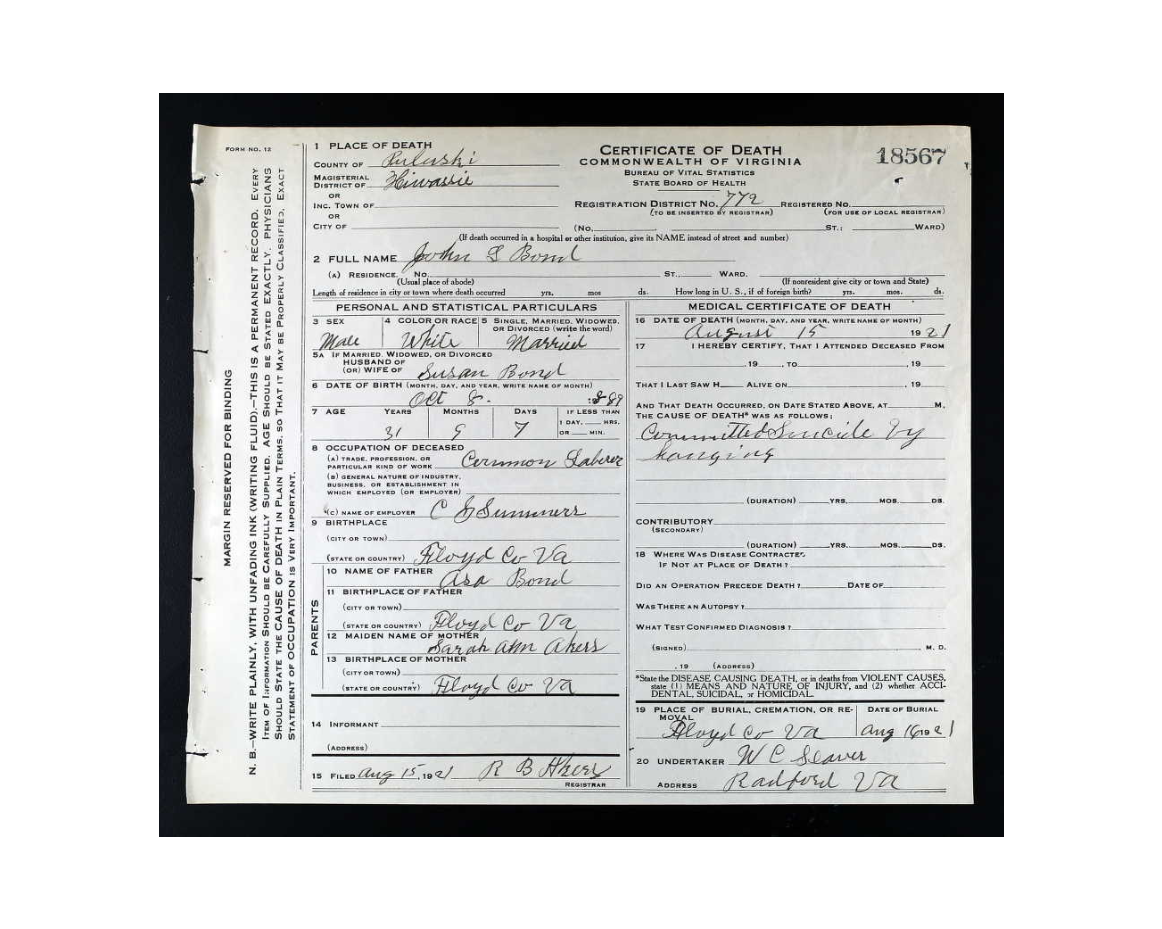 FORM NO. 12
MARGIN RESERVED FOR BINDING
N. B.—WRITE PLAINLY, WITH UNFADING INK (WRITING FLUID).—THIS IS A PERMANENT RECORD. EVERY
ITEM OF INFORMATION SHOULD BE CAREFULLY SUPPLIED. AGE SHOULD BE STATED EXACTLY. PHYSICIANS
SHOULD STATE THE CAUSE OF DEATH IN PLAIN TERMS, SO THAT IT MAY BE PROPERLY CLASSIFIED. EXACT
STATEMENT OF OCCUPATION IS VERY IMPORTANT.
1 PLACE OF DEATH
COUNTY OF Puluski
MAGISTERIAL
DISTRICT OF Hiwassie
OR
INC. TOWN OF
OR
CITY OF
CERTIFICATE OF DEATH
COMMONWEALTH OF VIRGINIA
BUREAU OF VITAL STATISTICS
STATE BOARD OF HEALTH
18567
REGISTRATION DISTRICT NO. 772 REGISTERED NO.
(TO BE INSERTED BY REGISTRAR) (FOR USE OF LOCAL REGISTRAR)
(No. ST.; WARD)
(If death occurred in a hospital or other institution, give its NAME instead of street and number)
2 FULL NAME John S Bond
(A) RESIDENCE. No. ST., WARD.
(Usual place of abode) (If nonresident give city or town and State)
Length of residence in city or town where death occurred yrs. mos ds. How long in U. S., if of foreign birth? yrs. mos. ds.
PERSONAL AND STATISTICAL PARTICULARS
3 SEX 4 COLOR OR RACE 5 SINGLE, MARRIED, WIDOWED,
OR DIVORCED (write the word)
Male White Married
5A IF MARRIED, WIDOWED, OR DIVORCED
HUSBAND OF
(OR) WIFE OF Susan Bond
6 DATE OF BIRTH (MONTH, DAY, AND YEAR, WRITE NAME OF MONTH)
Oct 8. 1889
7 AGE YEARS MONTHS DAYS IF LESS THAN
1 DAY, HRS.
OR MIN.
31 9 7
8 OCCUPATION OF DECEASED
(A) TRADE, PROFESSION, OR
PARTICULAR KIND OF WORK Common Laborer
(B) GENERAL NATURE OF INDUSTRY,
BUSINESS, OR ESTABLISHMENT IN
WHICH EMPLOYED (OR EMPLOYER)
(C) NAME OF EMPLOYER C S Summers
9 BIRTHPLACE
(CITY OR TOWN)
(STATE OR COUNTRY) Floyd Co Va
PARENTS
10 NAME OF FATHER Asa Bond
11 BIRTHPLACE OF FATHER
(CITY OR TOWN)
(STATE OR COUNTRY) Floyd Co Va
12 MAIDEN NAME OF MOTHER
Sarah Ann Akers
13 BIRTHPLACE OF MOTHER
(CITY OR TOWN)
(STATE OR COUNTRY) Floyd Co Va
14 INFORMANT
(ADDRESS)
15 FILED Aug 15, 1921 R B Akers
REGISTRAR
MEDICAL CERTIFICATE OF DEATH
16 DATE OF DEATH (MONTH, DAY, AND YEAR, WRITE NAME OF MONTH)
August 15 1921
17 I HEREBY CERTIFY, THAT I ATTENDED DECEASED FROM
, 19 , TO , 19
THAT I LAST SAW H ALIVE ON , 19
AND THAT DEATH OCCURRED, ON DATE STATED ABOVE, AT M.
THE CAUSE OF DEATH* WAS AS FOLLOWS:
Committed Suicide by
hanging
(DURATION) YRS. MOS. DS.
CONTRIBUTORY
(SECONDARY)
(DURATION) YRS. MOS. DS.
18 WHERE WAS DISEASE CONTRACTED
IF NOT AT PLACE OF DEATH?
DID AN OPERATION PRECEDE DEATH? DATE OF
WAS THERE AN AUTOPSY?
WHAT TEST CONFIRMED DIAGNOSIS?
(SIGNED) M. D.
, 19 (ADDRESS)
*State the DISEASE CAUSING DEATH, or in deaths from VIOLENT CAUSES,
state (1) MEANS AND NATURE OF INJURY, and (2) whether ACCI-
DENTAL, SUICIDAL, or HOMICIDAL.
19 PLACE OF BURIAL, CREMATION, OR RE- DATE OF BURIAL
MOVAL
Floyd Co Va Aug 16 1921
20 UNDERTAKER W C Seaver
ADDRESS Radford Va